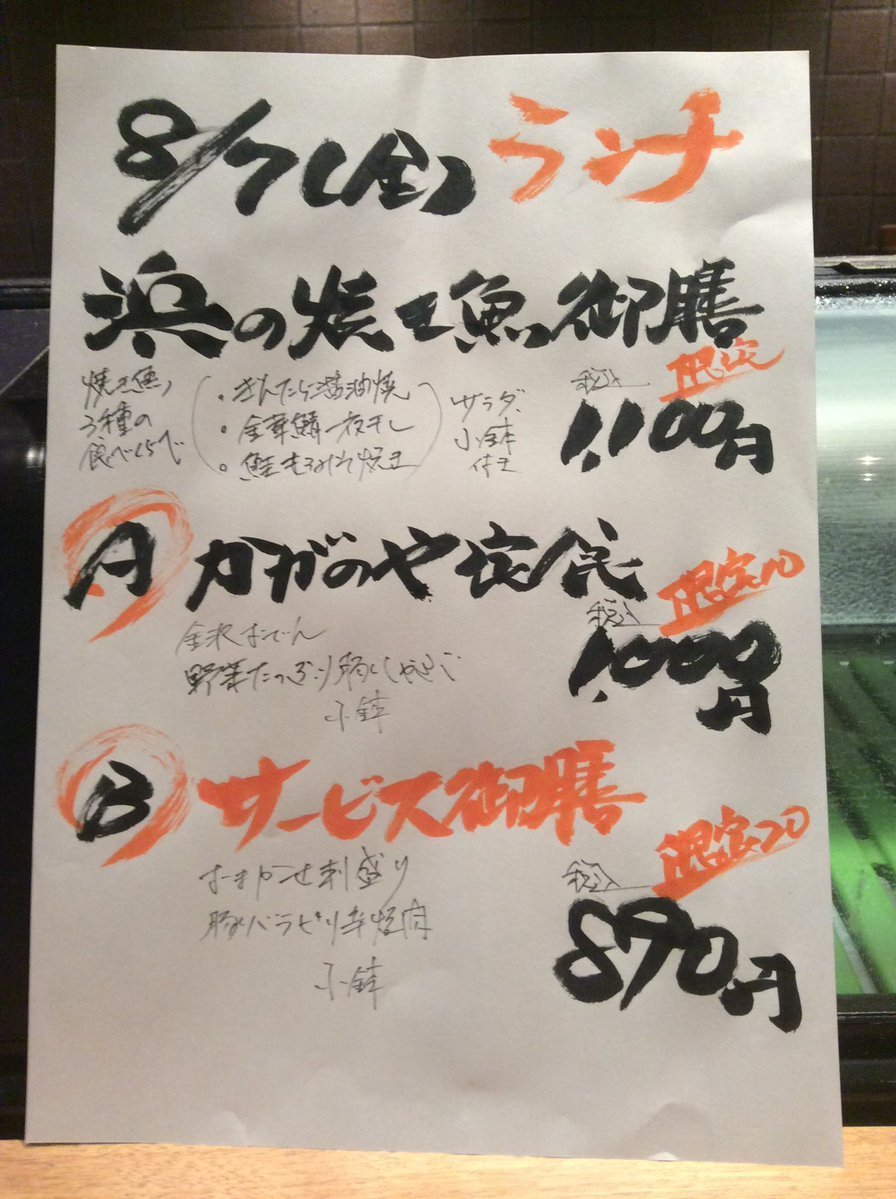 8/7(金) ランチ
浜の焼き魚御膳
焼き魚
3種の
食べくらべ
・ぎんだら醤油焼
・金華鯖一夜干し
・鮭もろみそ焼き
サラダ、
小鉢
付き
限定
税込
1,100円
A かがのや定食
金沢おでん
野菜たっぷり豚しゃぶ
小鉢
限定10
税込
1,000円
B サービス御膳
おまかせ刺盛り
豚バラピリ辛焼肉
小鉢
限定20
税込
890円